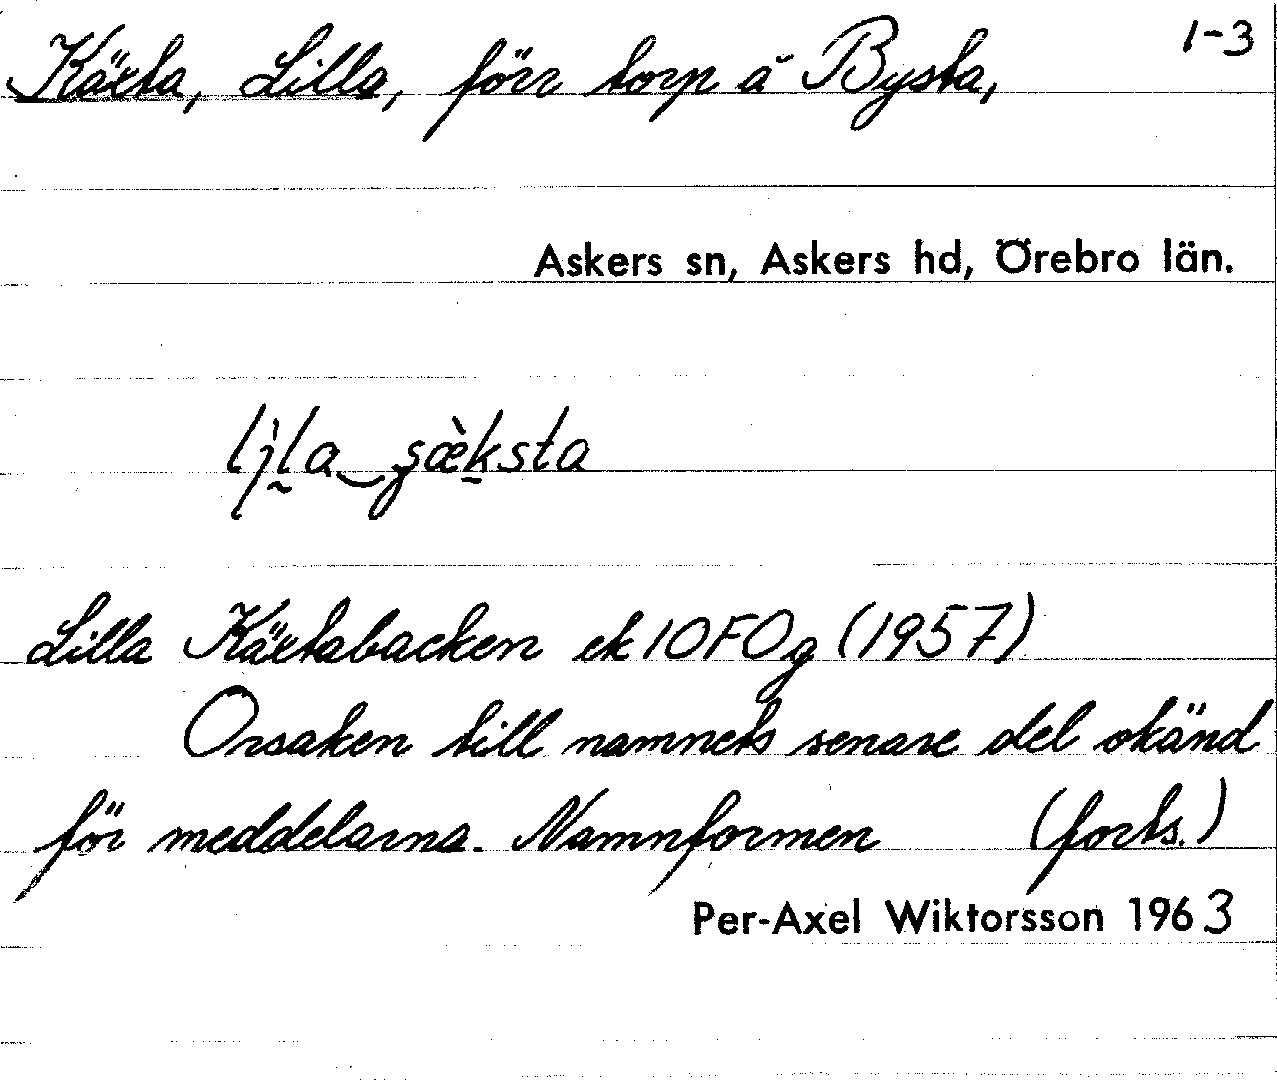 Käxta, Lilla, förr torp å Bysta, 1-3
Askers sn, Askers hd, Örebro län.
lı̀la‿şæ̀ksta
Lilla Käxtabacken ek 10F0g (1957)
Orsaken till namnets senare del okänd
för meddelarna. Namnformen (forts.)
Per-Axel Wiktorsson 1963